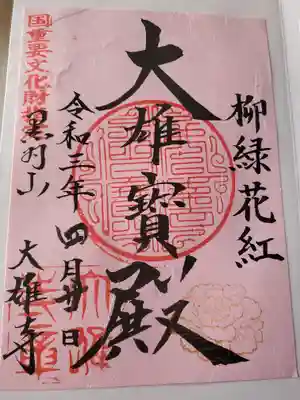 柳緑花紅
大雄寳殿
令和三年 四月廿日
国重要文化財
黒羽山 大雄寺